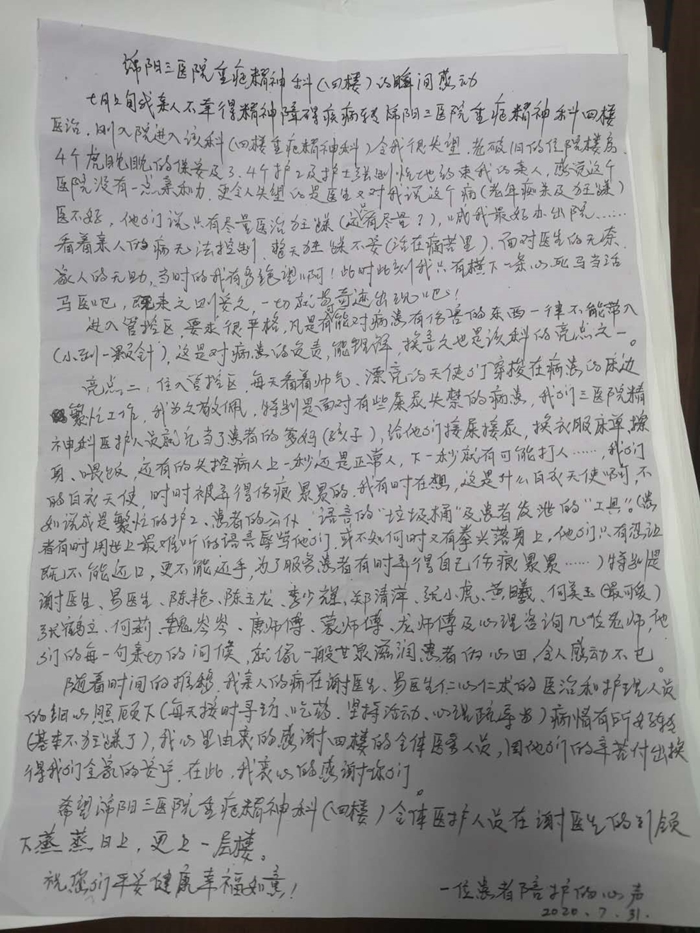 绵阳三医院重症精神科(四楼)的瞬间感动
七月上旬我亲人不幸得精神障碍疾病转绵阳三医院重症精神科四楼
医治,刚入院进入该科(四楼重症精神科)令我很失望,老破旧的住院楼房,
4个虎眈眈的保安及3.4个护工及护士强制性地约束我的亲人,感觉这个
医院没有一点亲和力,更令人失望的是医生又对我说这个病(老年痴呆及狂躁)
医不好,他们说只有尽量医治狂躁(还有尽量?),或我最好办出院……
看着亲人的病无法控制,整天狂躁不安(活在病苦里),面对医生的无奈,
家人的无助,当时的我有多绝望啊!此时此刻我只有横下一条心死马当活
马医吧,既来之则安之,一切就等奇迹出现吧!
进入管控区,要求很严格,凡是有能对病患有伤害的东西一律不能带入
(小到一颗针),这是对病患的负责,能理解,换言之也是该科的亮点之一。
亮点二:住入管控区,每天看着帅气、漂亮的天使们穿梭在病患的床边
繁忙工作,我为之敬佩,特别是面对有些屎尿失禁的病患,我们三医院精
神科医护人员就充当了患者的爹妈(孩子),给他们接屎接尿,换衣服床单擦
身、喂饭,还有的失控病人上一秒还是正常人,下一秒就有可能打人……,我们
的白衣天使,时时被弄得伤痕累累的,我有时在想,这是什么白衣天使啊,不
如说成是繁忙的护工、患者的公仆、语言的"垃圾桶"及患者发泄的"工具"。(患
者有时用世上最难听的语言辱骂他们,或不知何时又有拳头落身上,他们只有忍让
既不能还口,更不能还手,为了服务患者有时弄得自己伤痕累累……)特别是
谢医生、易医生、陈艳、陈玉龙、李少辉、郑清萍、张小虎、黄曦、何美玉(最可爱)
张鹤立、何莉、魏岑岑、唐师傅、蒙师傅、龙师傅及心理咨询几位老师,他
们的每一句亲切的问候,就像一股甘泉滋润患者的心田,令人感动不已。
随着时间的推移,我亲人的病在谢医生、易医生仁心仁术的医治和护理人员
的细心照顾下(每天按时寻访、吃药、坚持活动、心理疏导当)病情有所好转
(基本不狂躁了),我从里由衷的感谢四楼的全体医务人员,因他们的辛苦付出换
得我们全家的安宁,在此,我衷心的感谢你们。
希望绵阳三医院重症精神科(四楼)全体医护人员在谢医生的引领
下蒸蒸日上,更上一层楼。
祝您们平安健康幸福如意!
一位患者陪护的心声
2020.7.31.